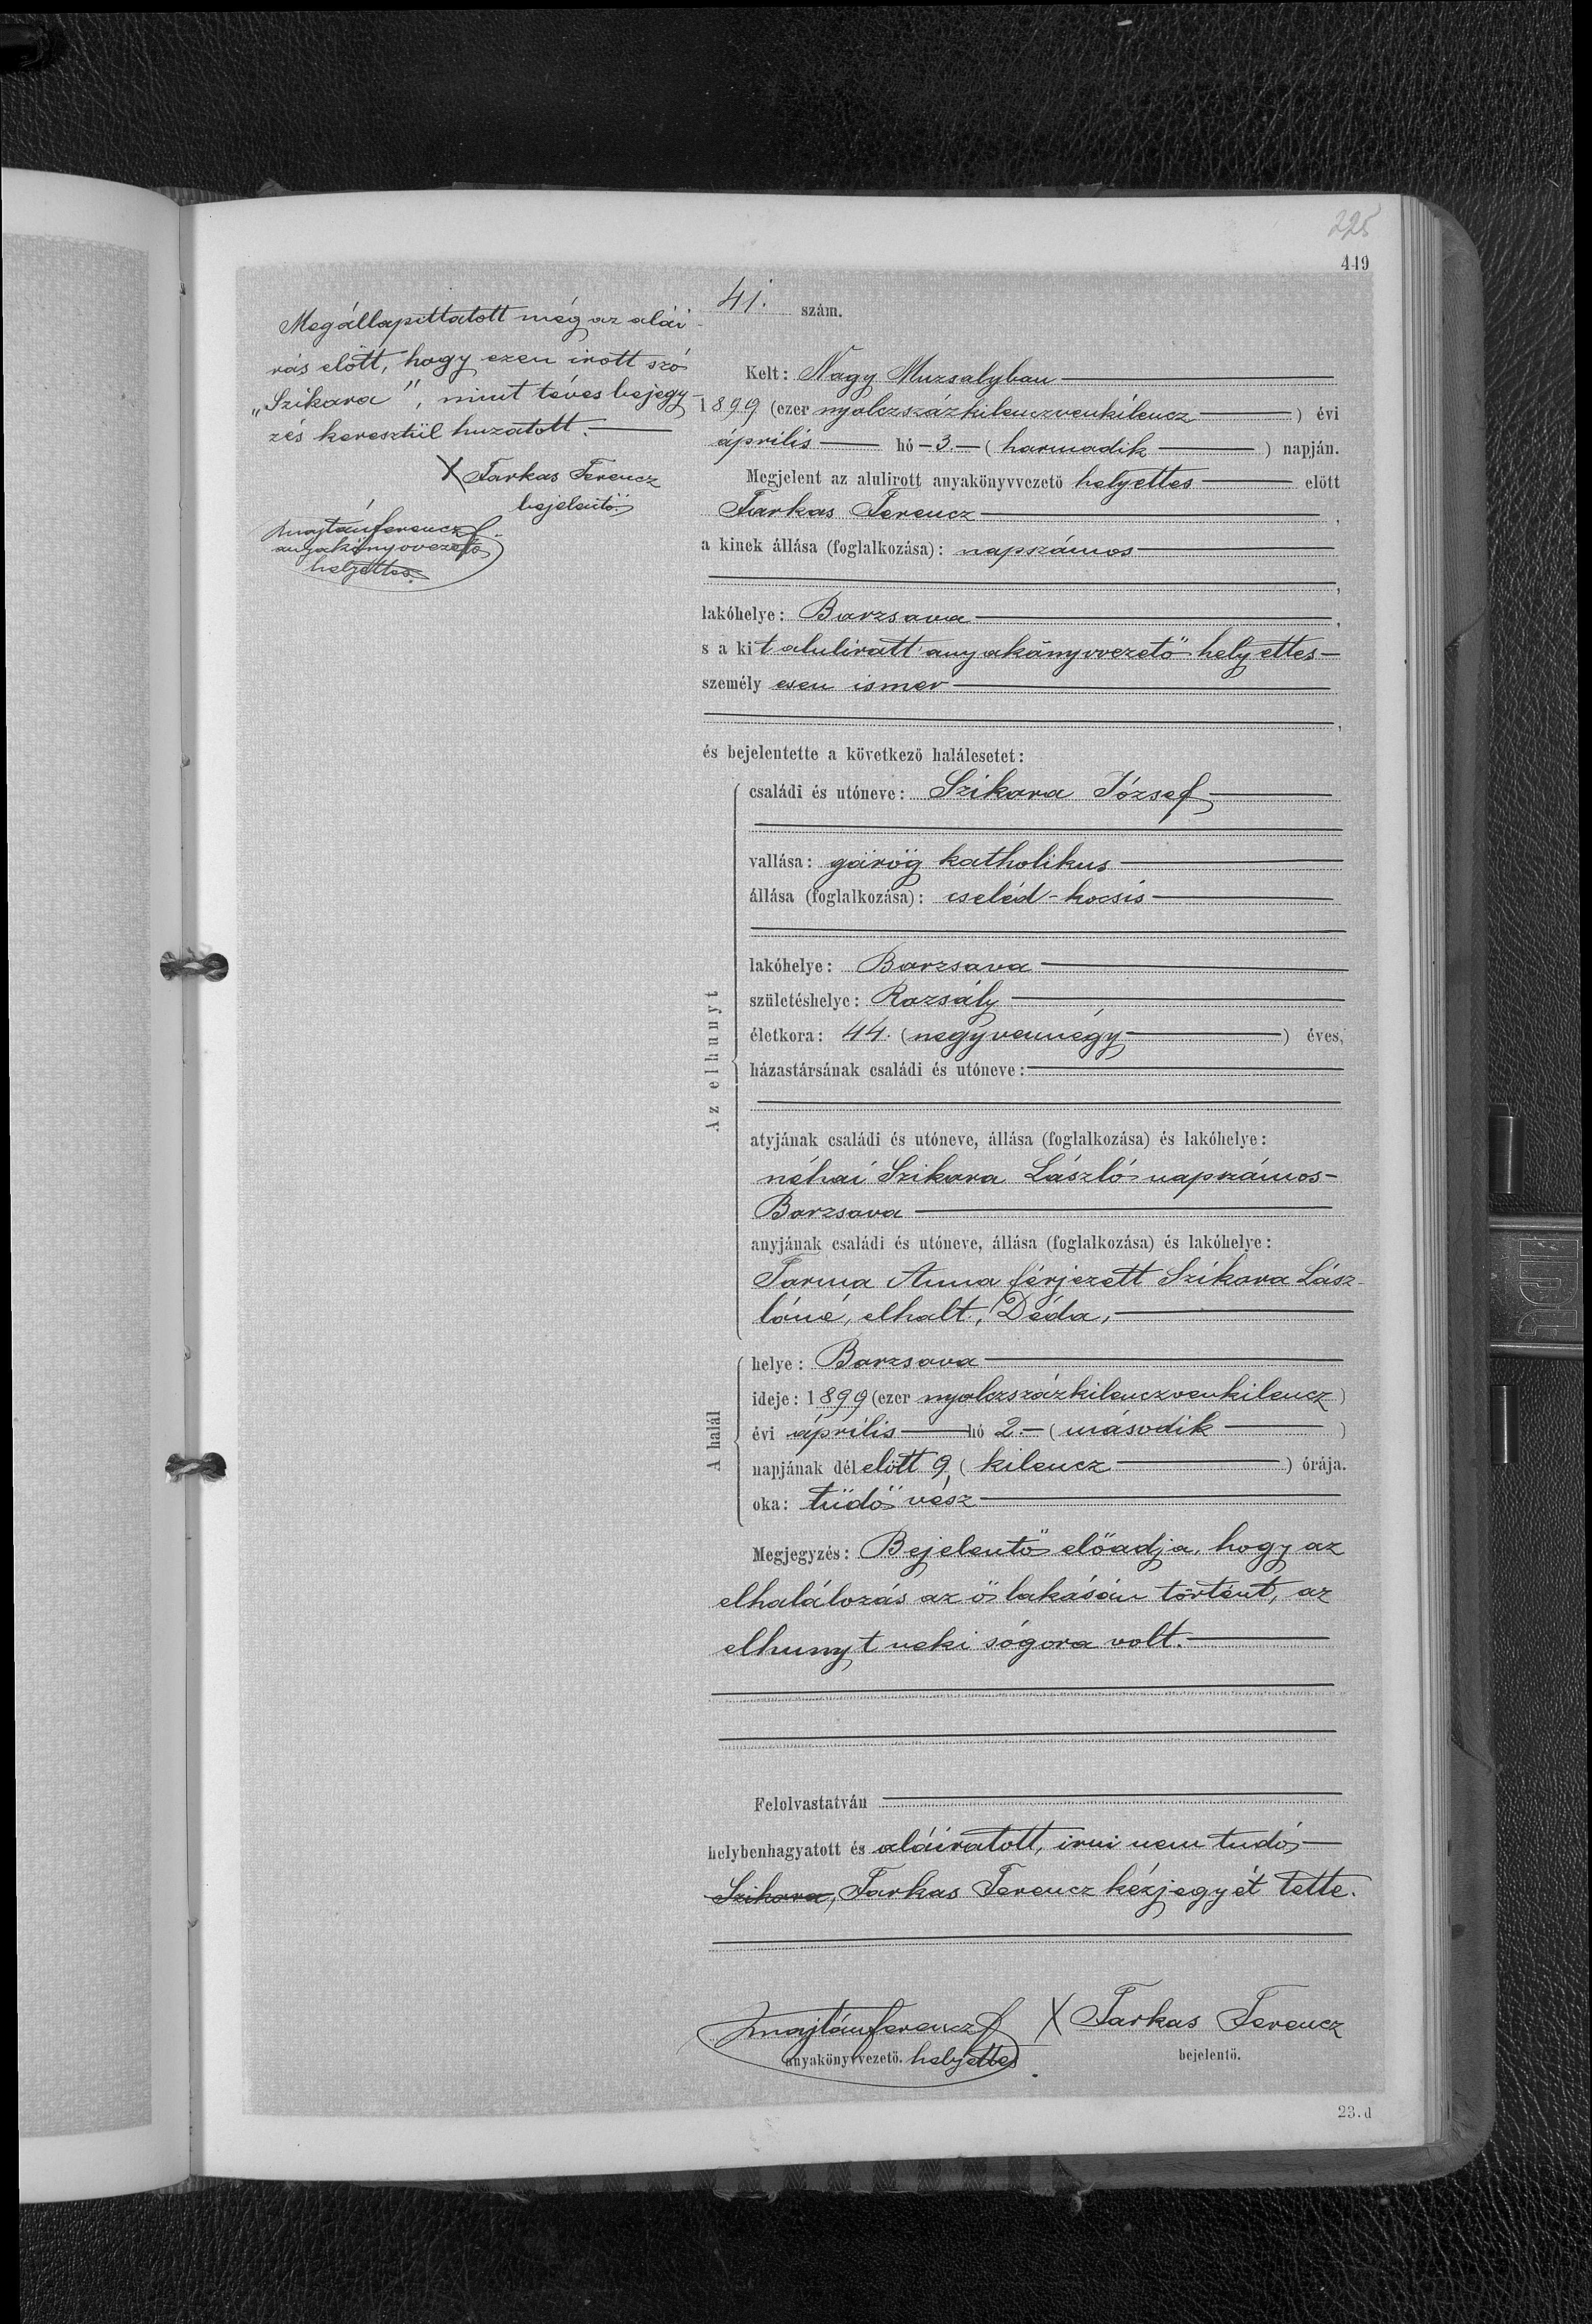 225
449
Megállapittatott még az alái-
rás előtt, hogy ezen irott szó
„Szikara", mint téves bejegy-
zés keresztül huzatott.
X Farkas Ferencz
bejelentő.
Majtán ferencz
anyakönyvvezető
helyettes.
41. szám.
Kelt: Nagy Muzsalyban
1899 (ezer nyolczszázkilenczvenkilencz) évi
április hó 3. (harmadik) napján.
Megjelent az alulirott anyakönyvvezető helyettes előtt
Farkas Ferencz,
a kinek állása (foglalkozása): napszámos
,
lakóhelye: Barzsava,
s a kit alulirott anyakönyvvezető helyettes
személyesen ismer
,
és bejelentette a következő halálesetet:
Az elhunyt
családi és utóneve: Szikara József
vallása: görög katholikus
állása (foglalkozása): cseléd-kocsis
lakóhelye: Barzsava
születéshelye: Rozsály
életkora: 44. (negyvennégy) éves,
házastársának családi és utóneve:
atyjának családi és utóneve, állása (foglalkozása) és lakóhelye:
néhai Szikara László napszámos-
Barzsava
anyjának családi és utóneve, állása (foglalkozása) és lakóhelye:
Tarna Anna férjezett Szikara Lász-
lóné, elhalt, Déda,
A halál
helye: Barzsava
ideje: 1899 (ezer nyolczszázkilenczvenkilencz)
évi április hó 2. (második)
napjának délelőtt 9 (kilencz) órája.
oka: tüdő vész
Megjegyzés: Bejelentő előadja, hogy az
elhalálozás az ő lakásán történt, az
elhunyt neki sógora volt.
Felolvastatván
helybenhagyatott és aláiratott, irni nem tudó
Szikara, Farkas Ferencz kézjegyét tette.
Majtán ferencz
anyakönyvvezető. helyettes
X Farkas Ferencz
bejelentő.
23.d